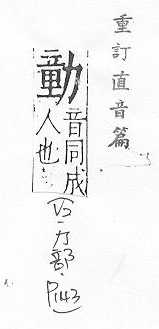 重訂直音篇
勭
音同成
人也
力部.
P143